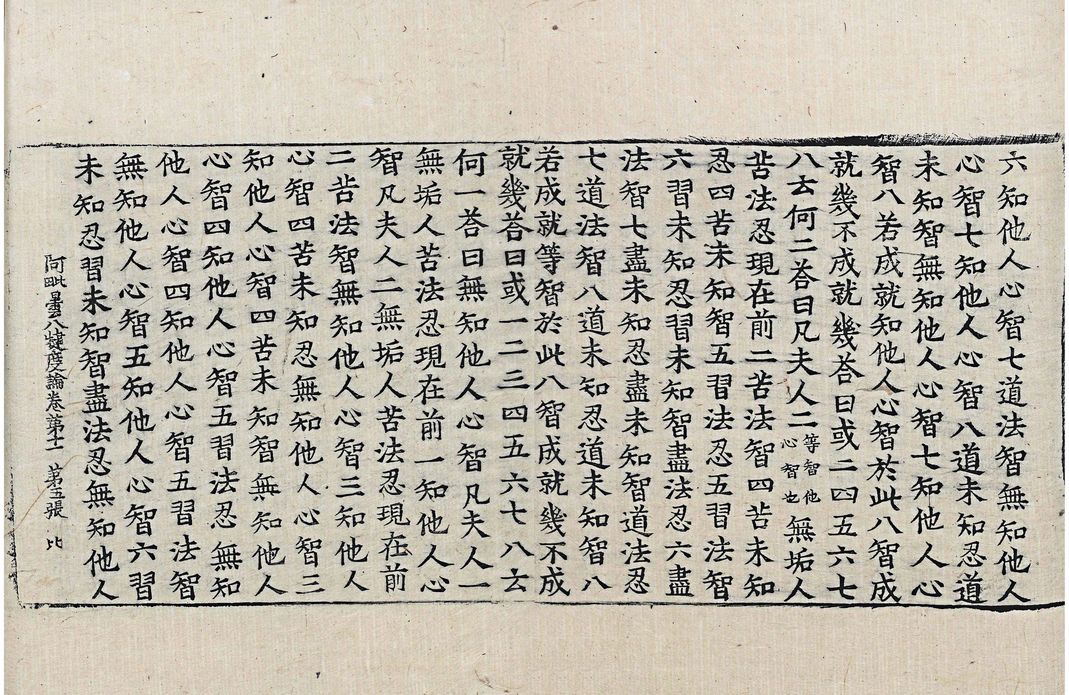 六知他人心智七道法智無知他人
心智七知他人心智八道未知忍道
未知智無知他人心智七知他人心
智八若成就知他人心智於此八智成
就幾不成就幾荅曰或二四五六七
八云何二荅曰凡夫人二等智他心智也無垢人
苦法忍現在前二苦法智四苦未知
忍四苦未知智五習法忍五習法智
六習未知忍習未知智盡法忍六盡
法智七盡未知忍盡未知智道法忍
七道法智八道未知忍道未知智八
若成就等智於此八智成就幾不成
就幾荅曰或一二三四五六七八云
何一荅曰無知他人心智凡夫人一
無垢人苦法忍現在前一知他人心
智凡夫人二無垢人苦法忍現在前
二苦法智無知他人心智三知他人
心智四苦未知忍無知他人心智三
知他人心智四苦未知智無知他人
心智四知他人心智五習法忍無知
他人心智四知他人心智五習法智
無知他人心智五知他人心智六習
未知忍習未知智盡法忍無知他人
阿毗曇八犍度論卷第十一 第五張 比